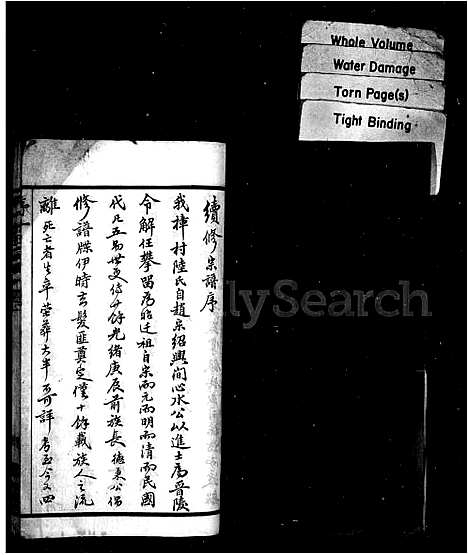 Whole Volume
Water Damage
Torn Page(s)
Tight Binding
續修宗譜序
我樟村陸氏自趙宋紹興間心水公以進士為晉陵
令解任攀留為始迁祖自宗而元而明而清而民國
代凡五易世更俗廿餘光緒庚辰前族長德東公倡
修譜牒伊時玄髮匪莫定僅十餘載族人之流
離死亡者生卒塋葬大半可詳考至今又四
lySearch